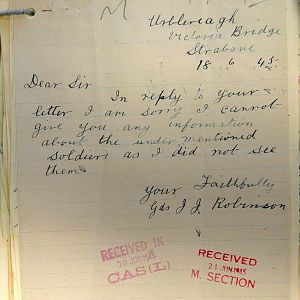 Urblereagh
Victoria Bridge
Strabane
18 6 45
Dear Sir
In reply to your
letter I am sorry I cannot
give you any information
about the undermentioned
soldiers as I did not see
them
Your Faithfully
Gds J J Robinson
RECEIVED IN
20 JUN 1945
CAS(L)
RECEIVED
21 JUN 1945
M. SECTION